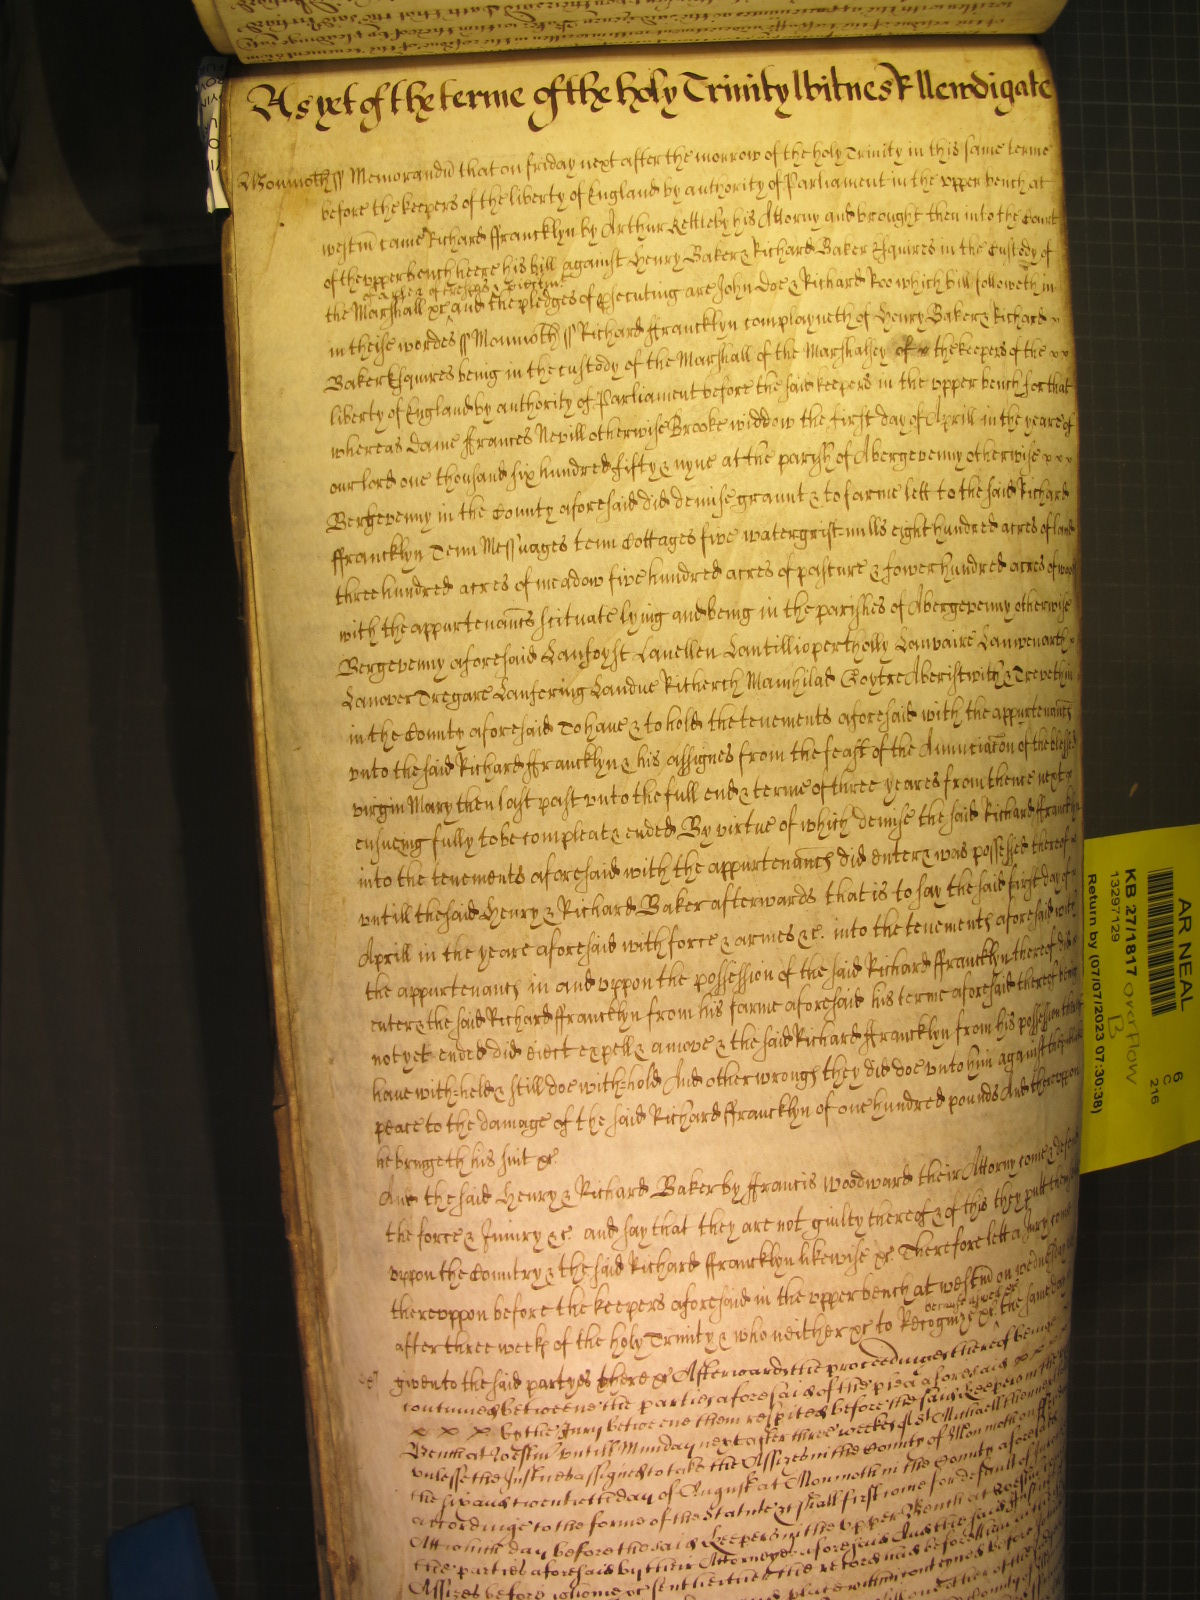 As yet of the terme of the holy Trinity Witnes R Newdigate
Monmoth ss Memorandu that on friday next after the morrow of the holy Trinity in this same terme
before the keepers of the liberty of England by authority of Parliament in the upper bench at
westm came Richard ffrancklyn by Arthur Kettleby his Attorny and brought then into the Court
of the upper bench heere his bill against Henry Baker & Richard Baker Esquires in the Custody of
of a plea of trespas & eiectmt
the Marshall &c and the pledges of psecuting are John Doe & Richard Roo which bill followeth in
in theise wordes ss Monmoth ss Richard ffrancklyn complayneth of Henry Baker & Richard
Baker Esquires being in the custody of the Marshall of the Marshalsey of the keepers of the
liberty of England by authority of Parliament before the said keepers in the upper bench for that
whereas Dame ffrances Nevill otherwise Brooke widdow the first day of Aprill in the yeare of
our lord one thousand six hundred fifty & nyne at the parish of Abergevenny otherwise
Bergevenny in the County aforesaid did demise graunt & to farme lett to the said Richard
ffrancklyn Tenn Messuages tenn Cottages five watergrist-mills eight hundred acres of land
three hundred acres of meadow five hundred acres of pasture & fower hundred acres of wood
with the appurtenancs scituate lying and being in the parishes of Abergevenny otherwise
Bergevenny aforesaid Lanfoyst Lanellen Lantilliopertholly Lanvaire Lanwenarth
Lanover Tregare Lanfering Landue Ritherch Mamhilad Goytre Aberistwith & Trevethin
in the County aforesaid To have & to hold the tenements aforesaid with the appurtenancs
unto the said Richard ffrancklyn & his assignes from the feast of the Annuciacon of the blessed
virgin Mary then last past unto the full end & terme of three yeares from thence next
ensueing fully to be compleat & ended By virtue of which demise the said Richard ffrancklyn
into the tenements aforesaid with the appurtenancs did enter & was possessed thereof
untill the said Henry & Richard Baker afterwards that is to say the said first day of
Aprill in the yeare aforesaid with force & armes &c. into the tenements aforesaid with
the appurtenancs in and uppon the possession of the said Richard ffrancklyn thereof did
enter & the said Richard ffrancklyn from his farme aforesaid his terme aforesaid thereof being
not yet ended did eiect expell & amove & the said Richard ffrancklyn from his possession thereof
have with-held & still doe with-hold And other wrongs they did doe unto him against the publique
peace to the damage of the said Richard ffrancklyn of one hundred pounds And thereuppon
he bringeth his suit &c
And the said Henry & Richard Baker by ffrancis Woodward their Attorny come & defend
the force & Iniury &c and say that they are not guilty thereof & of this they putt them
uppon the Country & the said Richard ffrancklyn likewise &c. Therefore lett a Jury come
thereuppon before the keepers aforesaid in the upper bench at westm on wednesday
after three weeks of the holy Trinity & who neither &c to Recognize &c the same day
because aswell &c
is given to the said partyes there &c Afterwards the proceedinges thereof beinge
continued betweene the parties aforesaid of the plea aforesaid
by the Jury betweene them respited before the said Keepers in the
Bench at Westm untill Munday next after three weekes of St Michaell then next
unlesse the Justices assigned to take the Assizes in the County of Monmoth
the six and twentieth day of August at Monmoth in the County aforesaid
accordinge to the forme of the Statute &c shall first come for default of
Att which day before the said Keepers in the upper Bench at Westm
the parties aforesaid by their Attorneyes aforesaid And the said
Assizes before whome &c sent heither their record had before them
AR NEAL
KB 27/1817 overflow
B
13297129
Return by (07/07/2023 07:30:38)
6
C
216